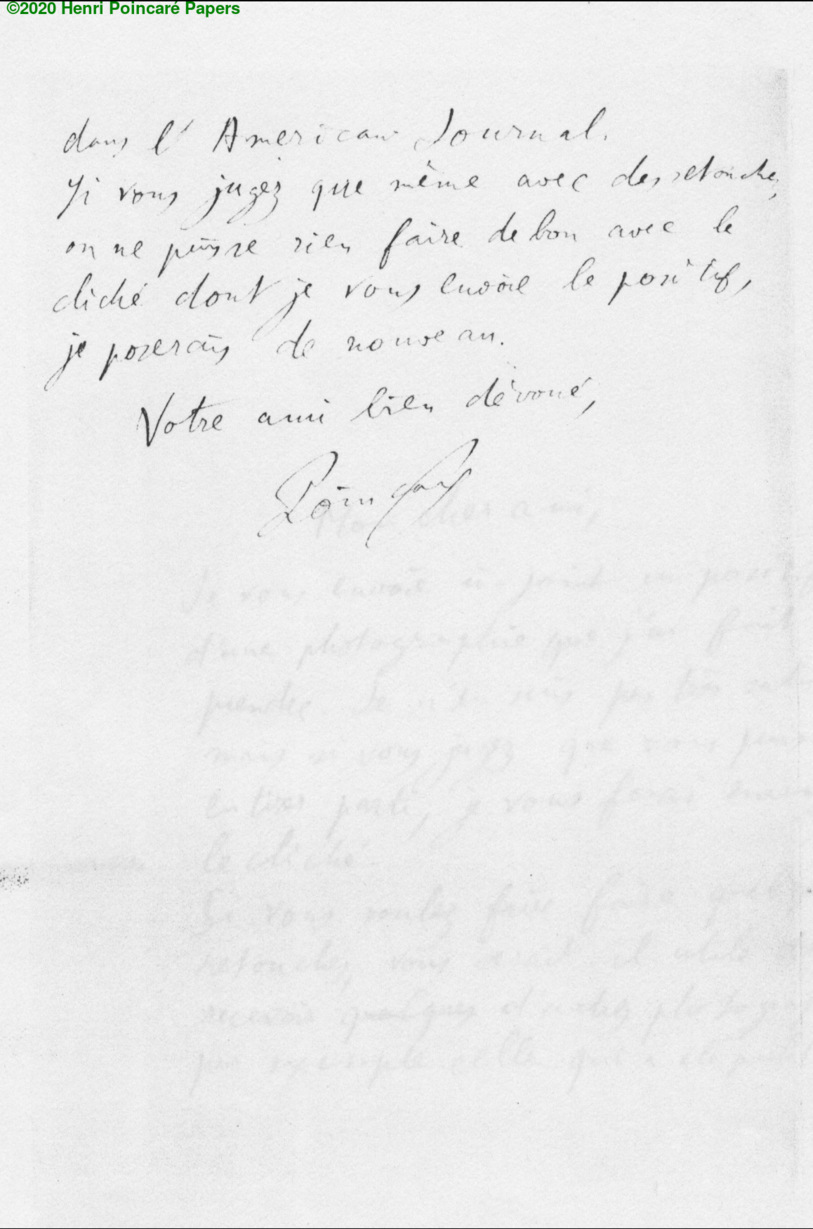 ©2020 Henri Poincaré Papers
dans l'American Journal.
Si vous jugez que même avec des retouches,
on ne puisse rien faire de bon avec le
cliché dont je vous envoie le positif,
je poserais de nouveau.
Votre ami bien dévoué,
Poincaré
Mon cher ami,
Je vous envoie ci-joint un
d'une photographie que j'ai fait
prendre. Je n'en suis pas très
mais si vous jugez que vous
en tirer parti, je vous ferai
le cliché.
Si vous voulez faire faire
retouches, vous serait-il utile
recevoir quelques d'autres
par exemple celle qui a été